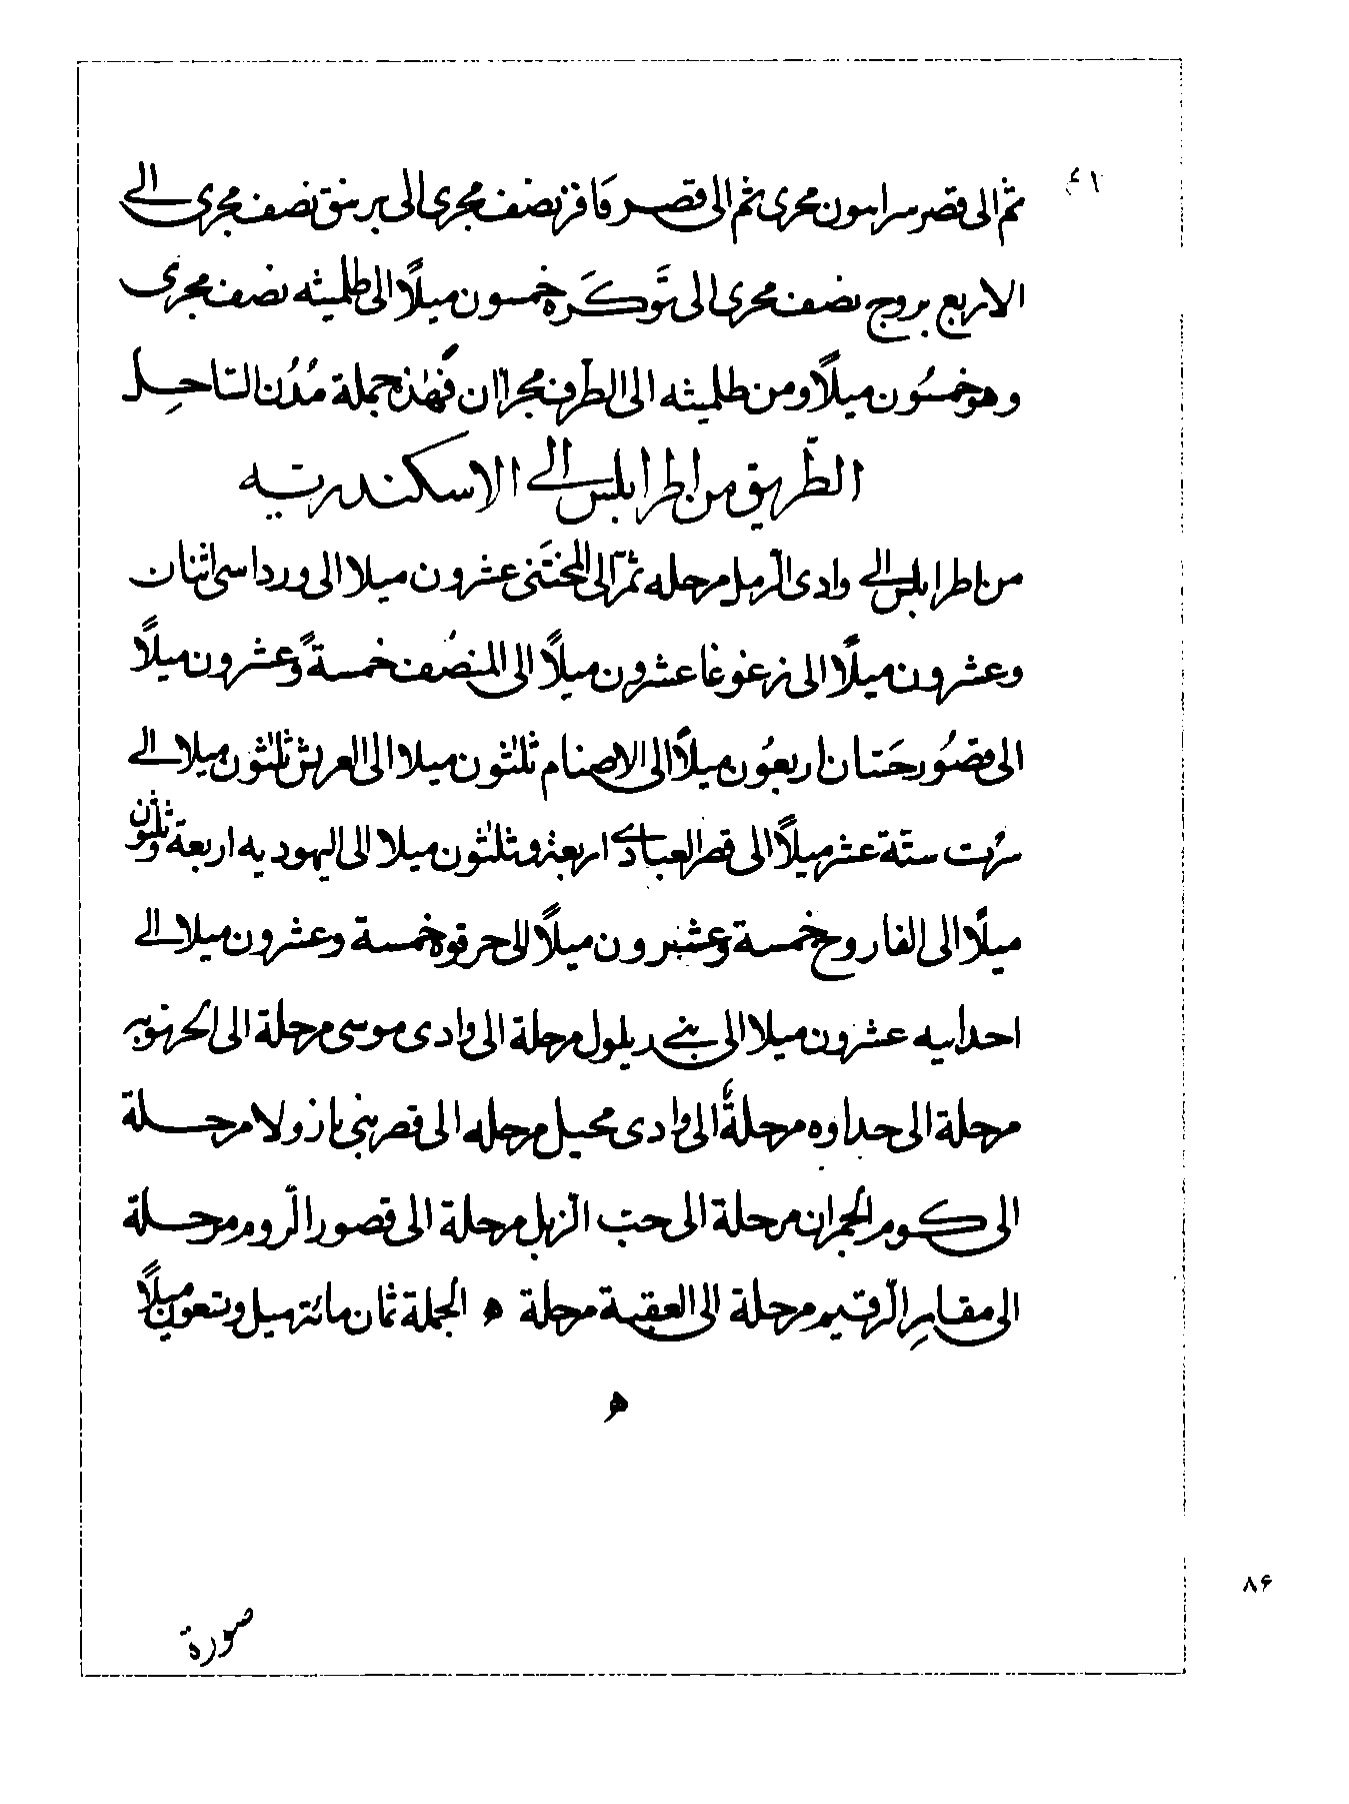 ثم الى قصر سراسون مجرى ثم الى قصر قافز نصف مجرى الى برنيق نصف مجرى الى
الاربع بروج نصف مجرى الى تَوكَره خمسون ميلًا الى طلميثه نصف مجرى
وهو خمسُون ميلًا ومن طلميثه الى الطرف مجراان فهٰذه جملة مُدُن الساحِل
الطّريق من اطرابلس الى الاسكندريّه
من اطرابلس الى وادى الرّمل مرحله ثمّ الى المخْتَنى عشرون ميلا الى ورداسى اثنان
وعشرون ميلًا الى زغوغا عشرون ميلًا الى المنصُف خمسةً وعشرون ميلًا
الى قصُور حَسان اربعُون ميلًا الى الاصنام ثلثون ميلا الى العريش ثلثون ميلا الى
سُرت ستّة عشر ميلًا الى قصر العبادى اربعة وثلثون ميلا الى اليهوديه اربعة وثلثون
ميلًا الى الفاروخ خمسة وعشرون ميلًا الى حرقوه خمسة وعشرون ميلا الى
احدابيه عشرون ميلا الى بنى ديلول مرحلة الى وادى موسى مرحلة الى
مرحلة الى حداوه مرحلةً الى وادى محيل مرحله الى قصر بنى بازولا مرحلة
الى كوم الحجران مرحلة الى حبّ الرّبل مرحلة الى قصور الرّوم مرحلة
الى مقابر الرّقيم مرحلة الى العقبة مرحلة ه الجملة ثمان مائة ميل وتسعون ميلًا
ه
صورة
٨۶